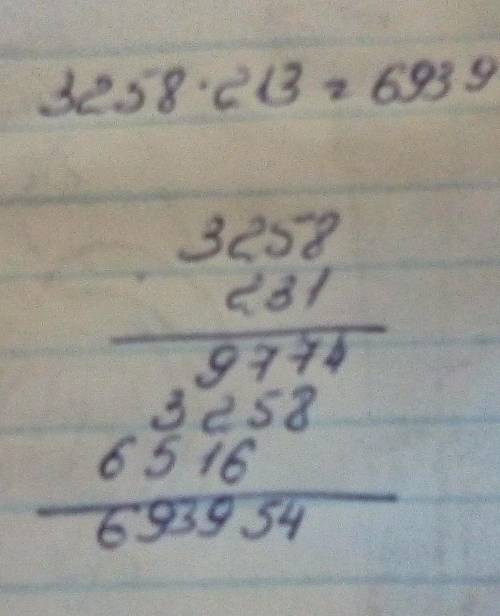 3258·213=6939
3258
231
9774
3258
6516
693954